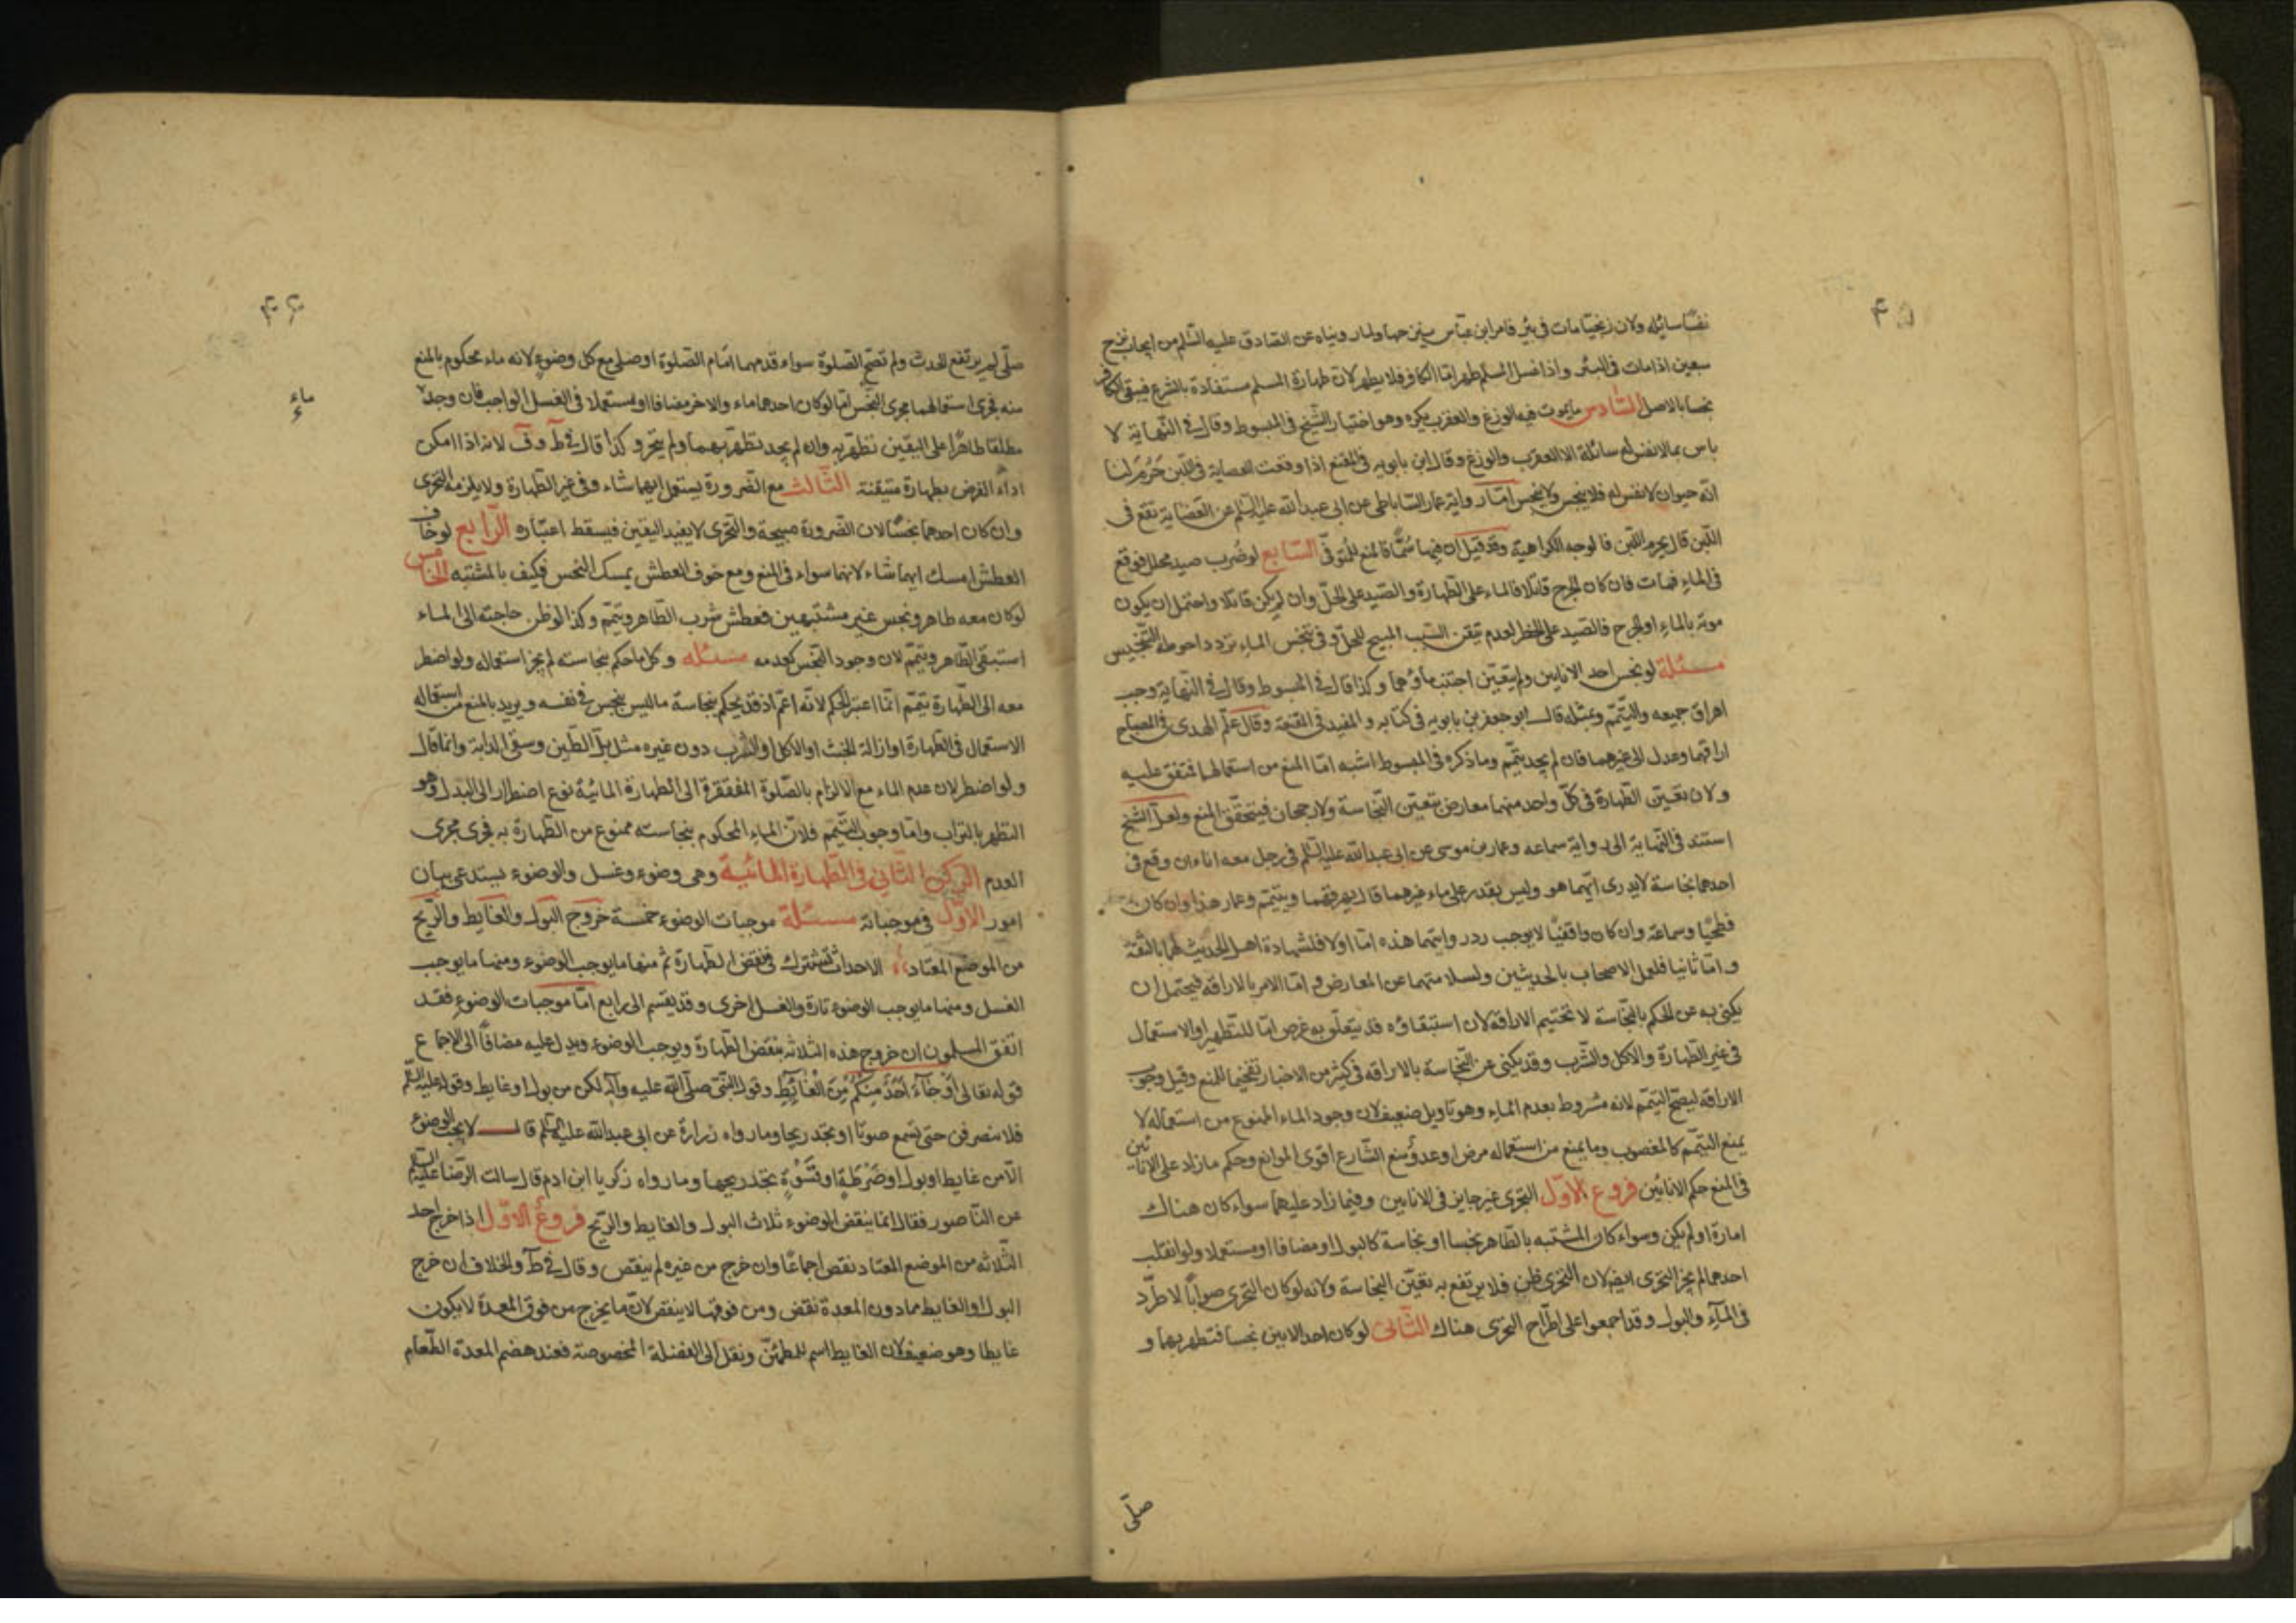 ۴۵
نفسًا سائله ولان زنجيًا مات في بئر فامر ابن عباس بنزحها ولما رويناه عن الصادق عليه السّلم من ايجاب نزح
سبعين اذا مات في البئر واذا غسل المسلم طهر امّا الكافر فلا يطهر لان طهارة المسلم مستفادة بالشرع فيبقى الكافر
نجسا بالاصل السّادس ما يموت فيه الوزغ والعقرب يكره وهو اختيار الشّيخ في المبسوط وقال في النّهاية لا
باس بما لا نفس له سائلة الا العقرب والوزغ وقال ابن بابويه في المقنع اذا وقعت العضاية في اللّبن حَرُم لنا
انّه حيوان لا نفس له فلا ينجس ولا ينجس امّا رواية عمار السّاباطي عن ابي عبد الله عليه السّلم عن العضاية تقع في
اللّبن قال يحرم اللّبن فالوجه الكراهية وقد قيل ان فيها سُمًّا فالمنع للتوقّي السّابع لو ضُرب صيد محلل فوقع
في الماء فمات فان كان الجرح قاتلا فالماء على الطّهارة والصّيد على الحلّ وان لم يكن قاتلا واحتمل ان يكون
موته بالماء او الجرح فالصّيد على الحظر لعدم تيقن السّبب المبيح للحلّ وفي تنجس الماء تردد احوطه التّنجيس
مسئلة لو نجس احد الانايين ولم يتعيّن اجتنب ماؤهما وكذا قال في المبسوط وقال في النّهاية وجب
اهراق جميعه والتّيمّم وبمثله قال ابو جعفر بن بابويه في كتابه والمفيد في المقنعة وقال علم الهدى في المصباح
اراقهما وعدل الى غيرهما فان لم يجد يتيمّم وما ذكره في المبسوط اشبه امّا المنع من استعمالهما فمتفق عليه
ولان يقين الطّهارة في كلّ واحد منهما معارض بتعيّن النّجاسة ولا رجحان فيتحقّق المنع ولعلّ الشّيخ
استند في النّهاية الى رواية سماعه وعمار بن موسى عن ابي عبد الله عليه السّلم في رجل معه اناءان وقع في
احدهما نجاسة لا يدرى ايّهما هو وليس يقدر على ماء غيرهما قال يهريقهما ويتيمّم وعمار هذا وان كان
فطحيًا وسماعة وان كان واقفيًا لا يوجب رد روايتهما هذه امّا اولا فلشهادة اهل الحديث لهما بالثقة
و امّا ثانيا فلعمل الاصحاب بالحديثين ولسلامتهما عن المعارض و امّا الامر بالاراقه فيحتمل ان
يكنى به عن الحكم بالنّجاسة لا تحتيم الاراقه لان استبقاؤه قد يتعلّق به غرض امّا للتّطهير او الاستعمال
في غير الطّهارة والاكل والشّرب وقد يكنى عن النّجاسة بالاراقه في كثير من الاخبار تفخيما للمنع وقيل وجوب
الاراقه ليصحّ التيمّم لانه مشروط بعدم الماء وهو تاويل ضعيف لان وجود الماء الممنوع من استعماله لا
يمنع التيمّم كالمغصوب وما يمنع من استعماله مرض او عدوّ ومنع الشّارع اقوى الموانع وحكم ما زاد على الانائين
في المنع حكم الانائين فروع الاوّل التحرى غير جايز في الانايين وفيما زاد عليهما سواء كان هناك
امارة او لم يكن وسواء كان المشتبه بالطّاهر نجسا او نجاسة كالبول او مضافا او مستعملا ولو انقلب
احدهما لم يجز التحرى ايضا لان التحرى ظن فلا يرتفع به تعيّن النجاسة ولانه لو كان التحرى صوابًا لاطرّد
في المآء والبول وقد اجمعوا على اطّراح التحرى هناك الثّانى لو كان احد الانايين نجسا فتطهر بهما و
صلّى
۴۶
صلّى لم يرتفع الحدث ولم تصحّ الصّلوة سواء قدمهما امام الصّلوة او صلى مع كل وضوء لانه ماء محكوم بالمنع
منه فجرى استعمالهما مجرى النّجس امّا لو كان احدهما ماء والاخر مضافا او مستعملا في الغسل الواجب فان وجد
ماء
مطلقا طاهرًا على اليقين تطهّر به وان لم يجد تطهّر بهما ولم يتحرّ وكذا قال في ط و ف لانه اذا امكن
اداء الفرض بطهارة متيقنة الثّالث مع الضّرورة يستعمل ايهما شاء وفي غير الطّهارة ولا يلزمه التحرى
وان كان احدهما نجسًا لان الضّرورة مبيحة والتحرى لا يفيد اليقين فيسقط اعتباره الرّابع لو خاف
العطش امسك ايهما شاء لانهما سواء في المنع ومع خوف العطش يمسك النّجس فكيف بالمشتبه الخامس
لو كان معه طاهر ونجس غير مشتبهين فعطش شرب الطّاهر ويتيمّم وكذا لو ظن حاجته الى الماء
استبقى الطّاهر ويتيمّم لان وجود النّجس كعدمه مسئله و كل ما حكم بنجاسته لم يجز استعماله ولو اضطر
معه الى الطّهارة تيمّم انّما اعتبر الحكم لانّه اعمّ اذ قد يحكم بنجاسة ما ليس بنجس في نفسه ويريد بالمنع من استعماله
الاستعمال في الطّهارة او ازالة الخبث او الاكل او الشّرب دون غيره مثل بلّ الطّين وسقى الدّابة وانّما قال
ولو اضطر لان عدم الماء مع الالزام بالصّلوة المفتقرة الى الطهارة المائيّة نوع اضطرار الى البدل وهو
التطهر بالتراب وامّا وجوب التّيمّم فلانّ الماء المحكوم بنجاسته ممنوع من الطّهارة به فجرى مجرى
العدم الركن الثّاني في الطّهارة المائيّة وهى وضوء وغسل والوضوء يستدعي بيان
امور الاوّل في موجباته مسئلة موجبات الوضوء خمسة خروج البول والغايط والرّيح
من الموضع المعتاد الاحداث تشترك في نقض الطّهارة ثم منها ما يوجب الوضوء ومنها ما يوجب
الغسل ومنها ما يوجب الوضوء تارة والغسل اخرى وقد يقسم الى رابع امّا موجبات الوضوء فقد
اتّفق المسلمون ان خروج هذه الثلاثه ينقض الطّهارة ويوجب الوضوء ويدل عليه مضافًا الى الاجماع
قوله تعالى اَوْ جَآءَ اَحَدٌ مِنْكُمْ مِنَ الْغَائِطِ وقول النّبي صلّى الله عليه وآله لكن من بول او غايط وقوله عليه السّلم
فلا ينصرفن حتى يسمع صوتًا او يجد ريحا وما رواه زرارة عن ابي عبد الله عليه السّلم قال لا يجب الوضوء
الّا من غايط او بول او ضَرْطَةٍ او فَسْوَةٍ تجد ريحها وما رواه زكريا ابن ادم قال سالت الرّضا عليه السّلم
عن النّاصور فقال انّما ينقض الوضوء ثلاث البول والغايط والرّيح فروع الاوّل اذا خرج احد
الثّلاثه من الموضع المعتاد نقض اجماعًا وان خرج من غيره لم ينقض وقال في ط والخلاف ان خرج
البول او الغايط مما دون المعدة نقض ومن فوقها لا ينقض لانّ ما يخرج من فوق المعدة لا يكون
غايطا وهو ضعيف لان الغايط اسم للمطمئنّ ونقل الى الفضلة المخصوصة فعند هضم المعدة الطّعام